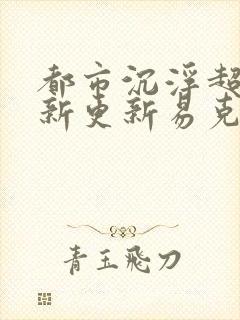 都市沉浮超
新更新易克
青玉飛刀